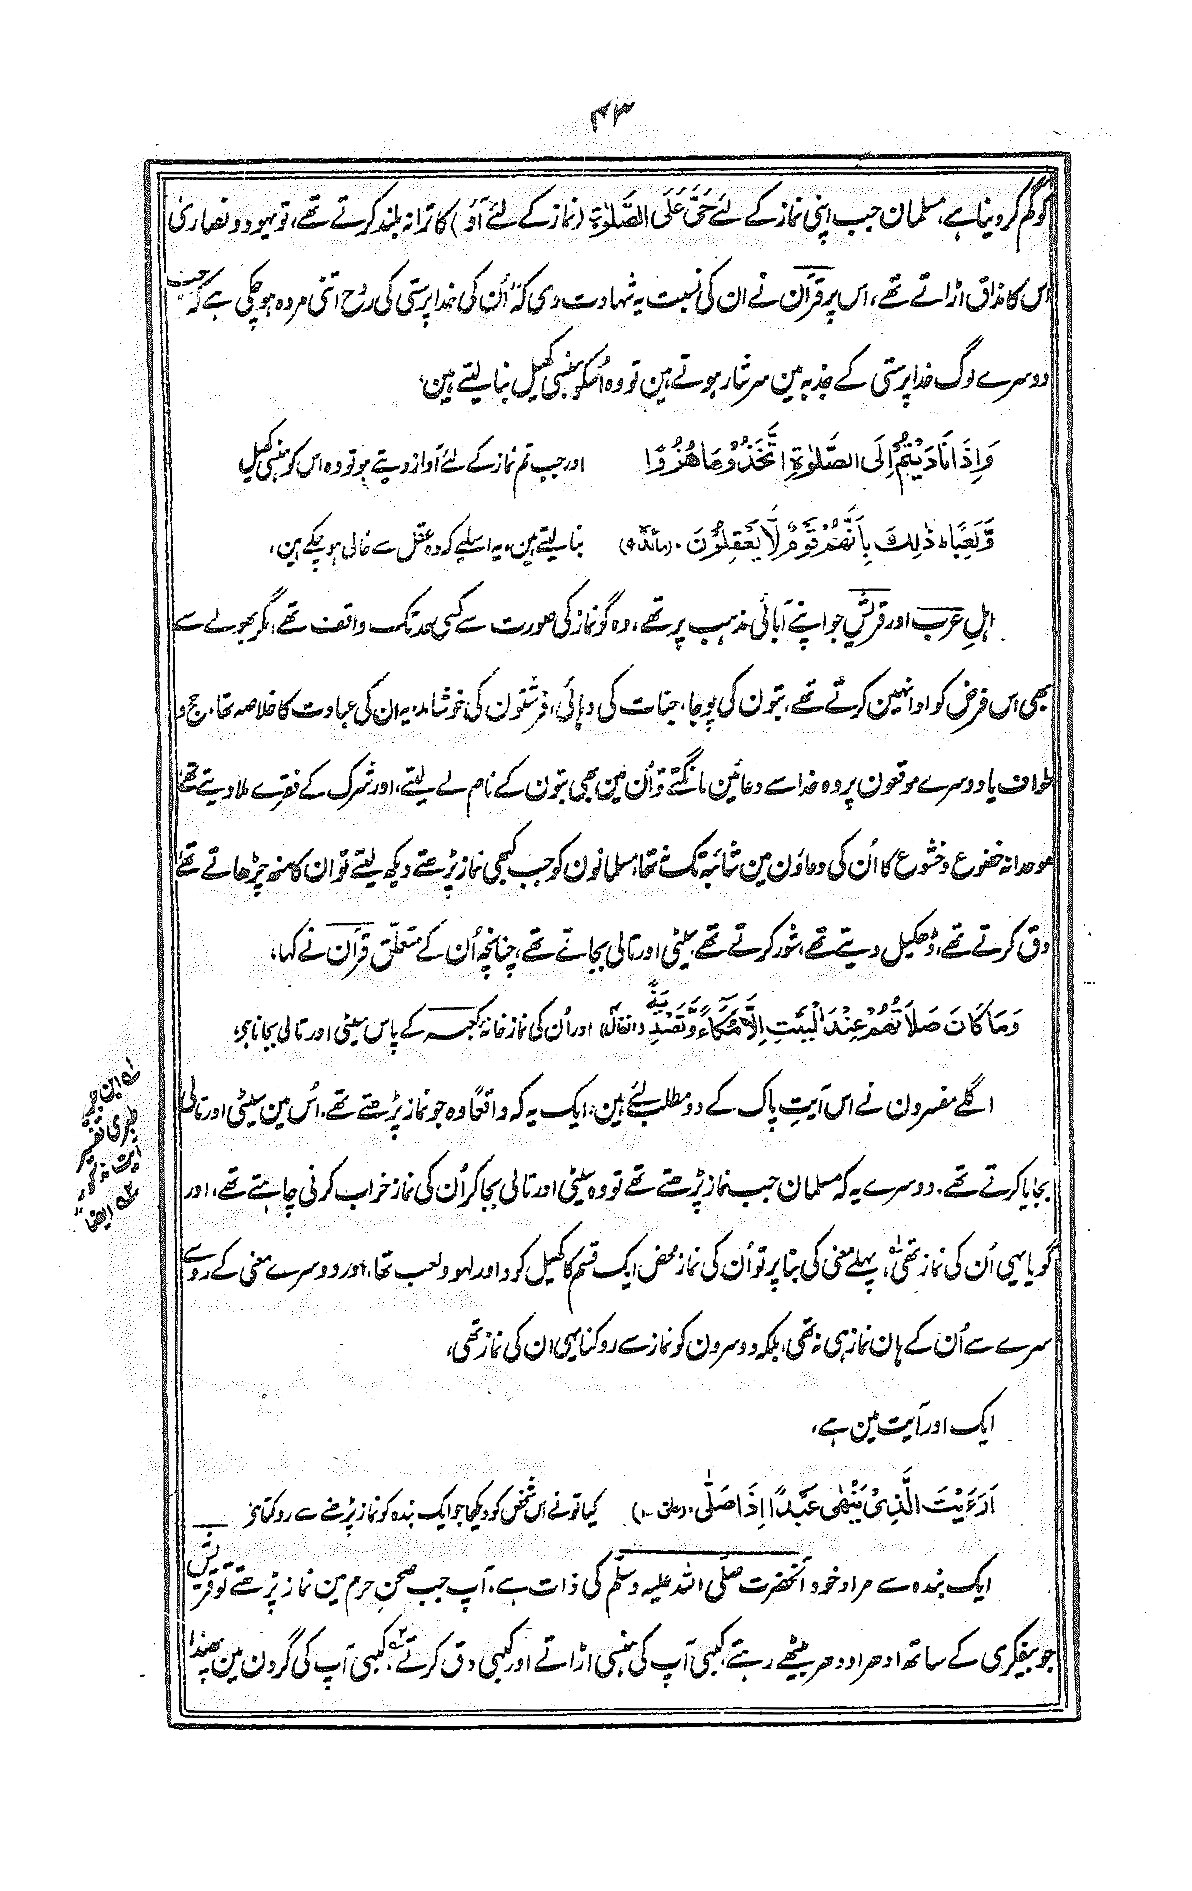 ۴۳
کو گم کر دینا ہے، مسلمان جب اپنی نماز کے لئے حَیَّ عَلَی الصَّلوٰۃِ (نماز کے لئے آؤ) کا ترانہ بلند کرتے تھے، تو یہود و نصاریٰ
اس کا مذاق اڑاتے تھے، اس پر قرآن نے ان کی نسبت یہ شہادت دی کہ اُن کی خدا پرستی کی روح اتنی مردہ ہو چکی ہے کہ جب
دوسرے لوگ خدا پرستی کے جذبہ مین سرشار ہوتے ہین تو وہ اُسکو ہنسی کھیل بنا لیتے ہین:
وَاِذَا نَادَیْتُمْ اِلَی الصَّلوٰۃِ اتَّخَذُوْھَا ھُزُوًا اور جب تم نماز کے لئے آواز دیتے ہو تو وہ اس کو ہنسی کھیل
وَّلَعِبًا، ذٰلِكَ بِاَنَّھُمْ قَوْمٌ لَّا یَعْقِلُوْنَ. (مائدہ ۹) بنا لیتے ہین، یہ اسلیے کہ وہ عقل سے خالی ہو چکے ہین،
اہلِ عرب اور قریش جو اپنے آبائی مذہب پر تھے، وہ گو نماز کی صورت سے کسی حد تک واقف تھے، مگر بھولے سے
بھی اس فرض کو ادا نہین کرتے تھے، بتون کی پوجا، جنات کی دہائی، فرشتون کی خوشامد، یہ ان کی عبادت کا خلاصہ تھا، حج و
طواف یا دوسرے موقعون پر وہ خدا سے دعائین مانگتے تو اُن مین بھی بتون کے نام لے لیتے، اور شرک کے فقرے ملا دیتے تھے،
موحدانہ خضوع و خشوع کا اُن کی دعاؤن مین شائبہ تک نہ تھا، مسلمانون کو جب کبھی نماز پڑھتے دیکھ لیتے تو ان کا منھ چڑھاتے تھے،
دق کرتے تھے، ڈھکیل دیتے تھے، شور کرتے تھے، سیٹی اور تالی بجاتے تھے، چنانچہ اُن کے متعلق قرآن نے کہا،
وَمَا كَانَ صَلَاتُھُمْ عِنْدَ الْبَیْتِ اِلَّا مُكَاءً وَّتَصْدِیَۃً (انفال) اور اُن کی نماز خانۂ کعبہ کے پاس سیٹی اور تالی بجانا ہی،
اگلے مفسرون نے اس آیتِ پاک کے دو مطلب لئے ہین، ایک یہ کہ واقعًا وہ جو نماز پڑھتے تھے، اُس مین سیٹی اور تالی
بجایا کرتے تھے، دوسرے یہ کہ مسلمان جب نماز پڑھتے تھے تو وہ سیٹی اور تالی بجا کر اُن کی نماز خراب کرنی چاہتے تھے، اور
گویا یہی اُن کی نماز تھی، پہلے معنی کی بنا پر تو اُن کی نماز محض ایک قسم کا کھیل کود اور لہو و لعب تھا، اور دوسرے معنی کے رو سے
سرے سے اُن کے ہان نماز ہی نہ تھی، بلکہ دوسرون کو نماز سے روکنا یہی ان کی نماز تھی،
ایک اور آیت مین ہے،
اَرَءَیْتَ الَّذِیْ یَنْھٰی عَبْدًا اِذَا صَلّٰی. (علق-۱) کیا تو نے اس شخص کو دیکھا جو ایک بندہ کو نماز پڑھنے سے روکتا ہی
ایک بندہ سے مراد خود آنحضرت صلّی اللہ علیہ وسلّم کی ذات ہے، آپ جب صحنِ حرم مین نماز پڑھتے تو قریش
جو بیفکری کے ساتھ ادھر اودھر بیٹھے رہتے، کبھی آپ کی ہنسی اڑاتے اور کبھی دق کرتے، کبھی آپ کی گردن مین پھندا
لہ ابن جریر
طبری تفسیر
آیت مذکور
۲ ایضًا